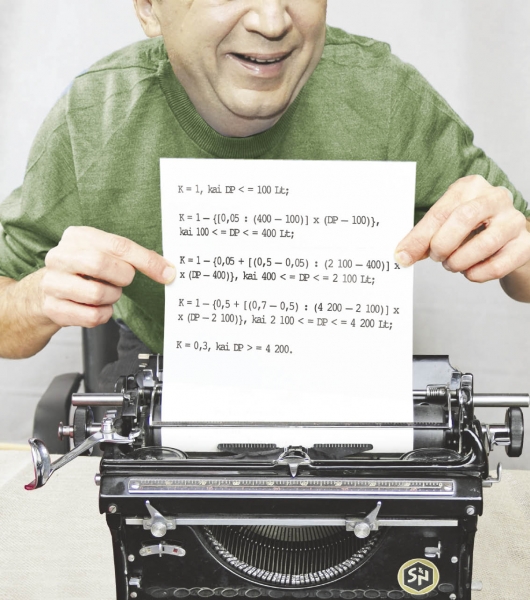 K = 1, kai DP < = 100 Lt;
K = 1 – {[0,05 : (400 – 100)] x (DP – 100)},
kai 100 < = DP < = 400 Lt;
K = 1 – {0,05 + [(0,5 – 0,05) : (2 100 – 400)] x
x (DP – 400)}, kai 400 < = DP < = 2 100 Lt;
K = 1 – {0,5 + [(0,7 – 0,5) : (4 200 – 2 100)] x
x (DP – 2 100)}, kai 2 100 < = DP < = 4 200 Lt;
K = 0,3, kai DP > = 4 200.